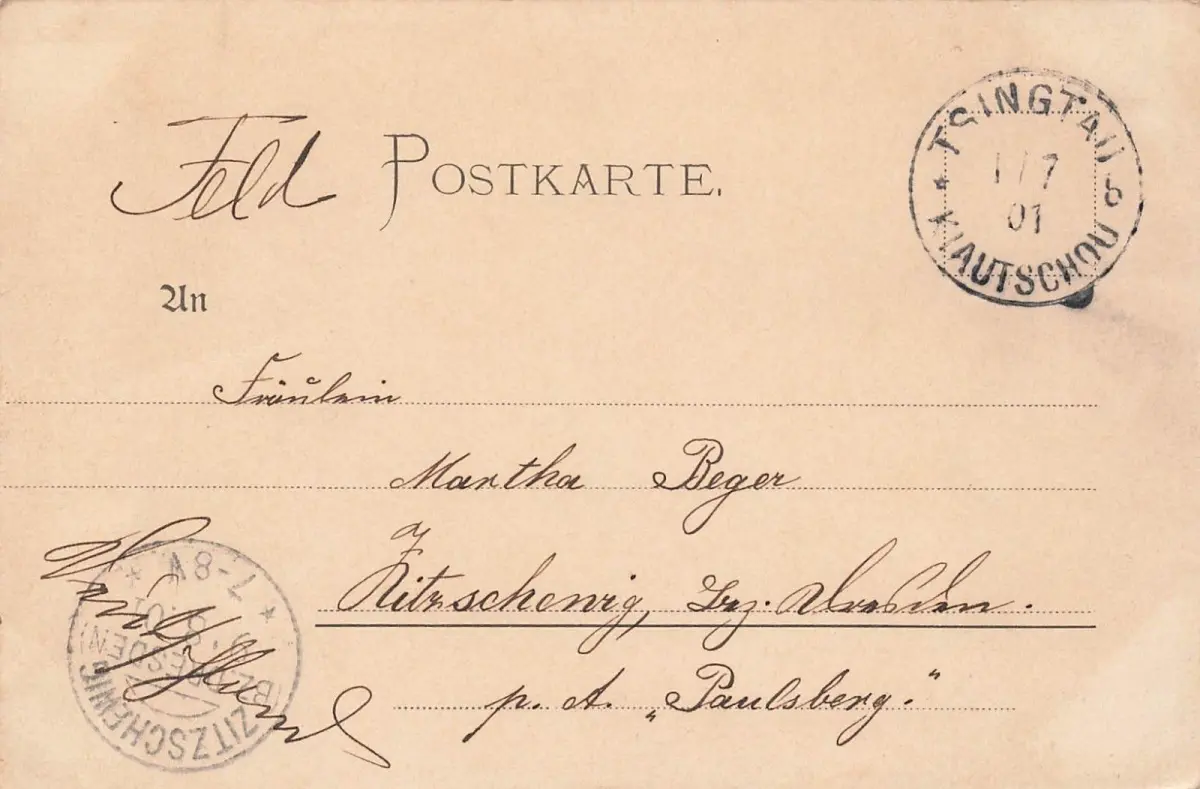 Feld POSTKARTE.
TSINGTAU b
* KIAUTSCHOU
1/7
01
An
Fräulein
Martha Beger
Zitzschewig, Bez. Dresden.
p. A. „Paulsberg."
ZITZSCHEWIG
(BZ. DRESDEN)
* 7-8V *